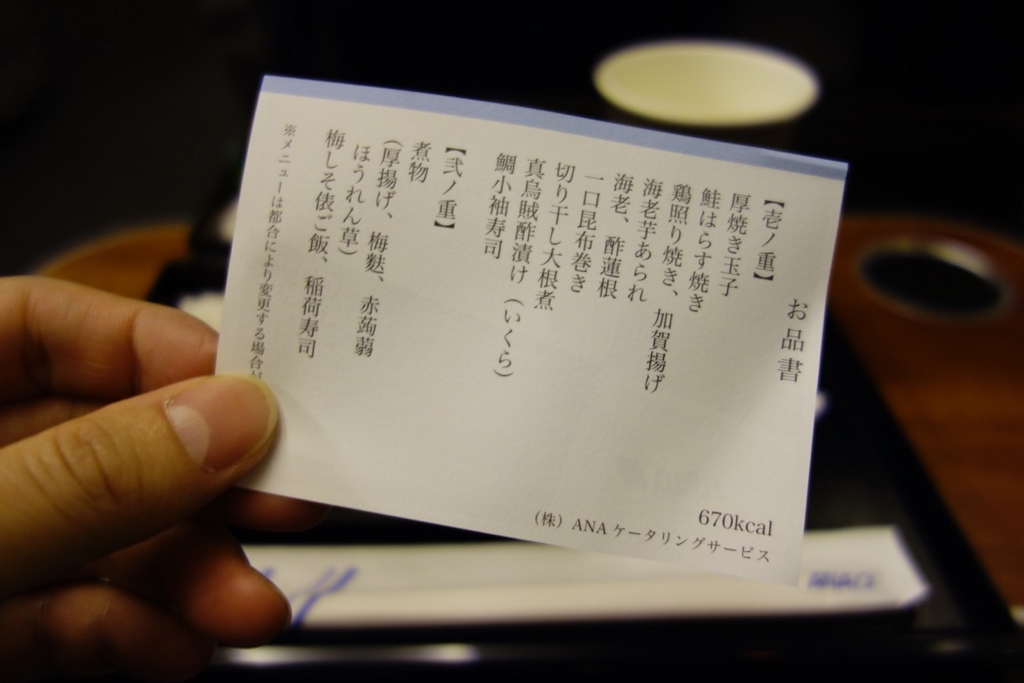 お品書
【壱ノ重】
厚焼き玉子
鮭はらす焼き
鶏照り焼き、加賀揚げ
海老芋あられ
海老、酢蓮根
一口昆布巻き
切り干し大根煮
真烏賊酢漬け（いくら）
鯛小袖寿司
【弐ノ重】
煮物
（厚揚げ、梅麩、赤蒟蒻
ほうれん草）
梅しそ俵ご飯、稲荷寿司
※メニューは都合により変更する場合
670kcal
（株）ANAケータリングサービス